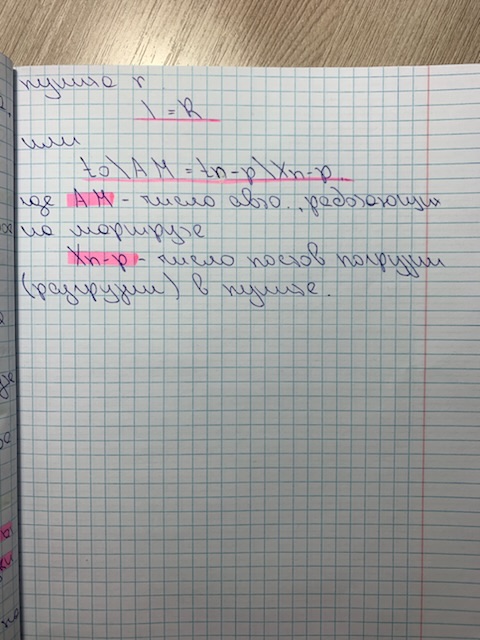 пункте r.
I = R
или
to\AM = tп-р\Xп-р.
где AM - число авто., работающих
на маршруте
Xп-р - число постов погрузки
(разгрузки) в пункте.